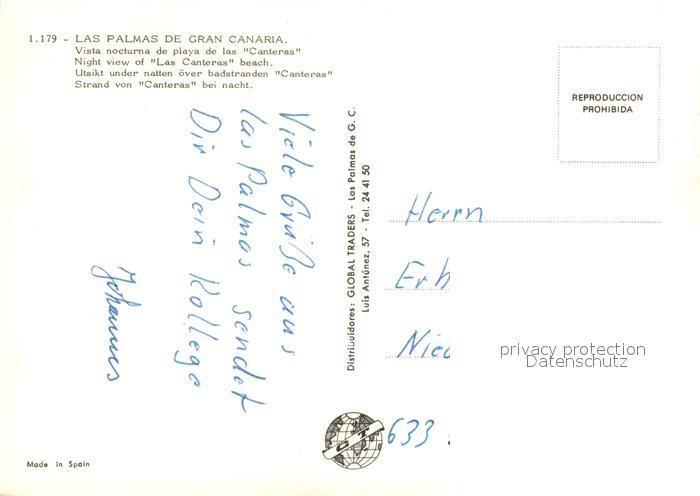 1.179 - LAS PALMAS DE GRAN CANARIA.
Vista nocturna de playa de las "Canteras"
Night view of "Las Canteras" beach.
Utsikt under natten över badstranden "Canteras"
Strand von "Canteras" bei nacht.
Viele Grüße aus
Las Palmas sendet
Dir Dein Kollege
Johannes
Distribuidores: GLOBAL TRADERS - Las Palmas de G. C.
Luis Antúnez, 57 - Tel. 24 41 50
REPRODUCCION
PROHIBIDA
Herrn
Erh
Nie
privacy protection
Datenschutz
633
GT
Made in Spain